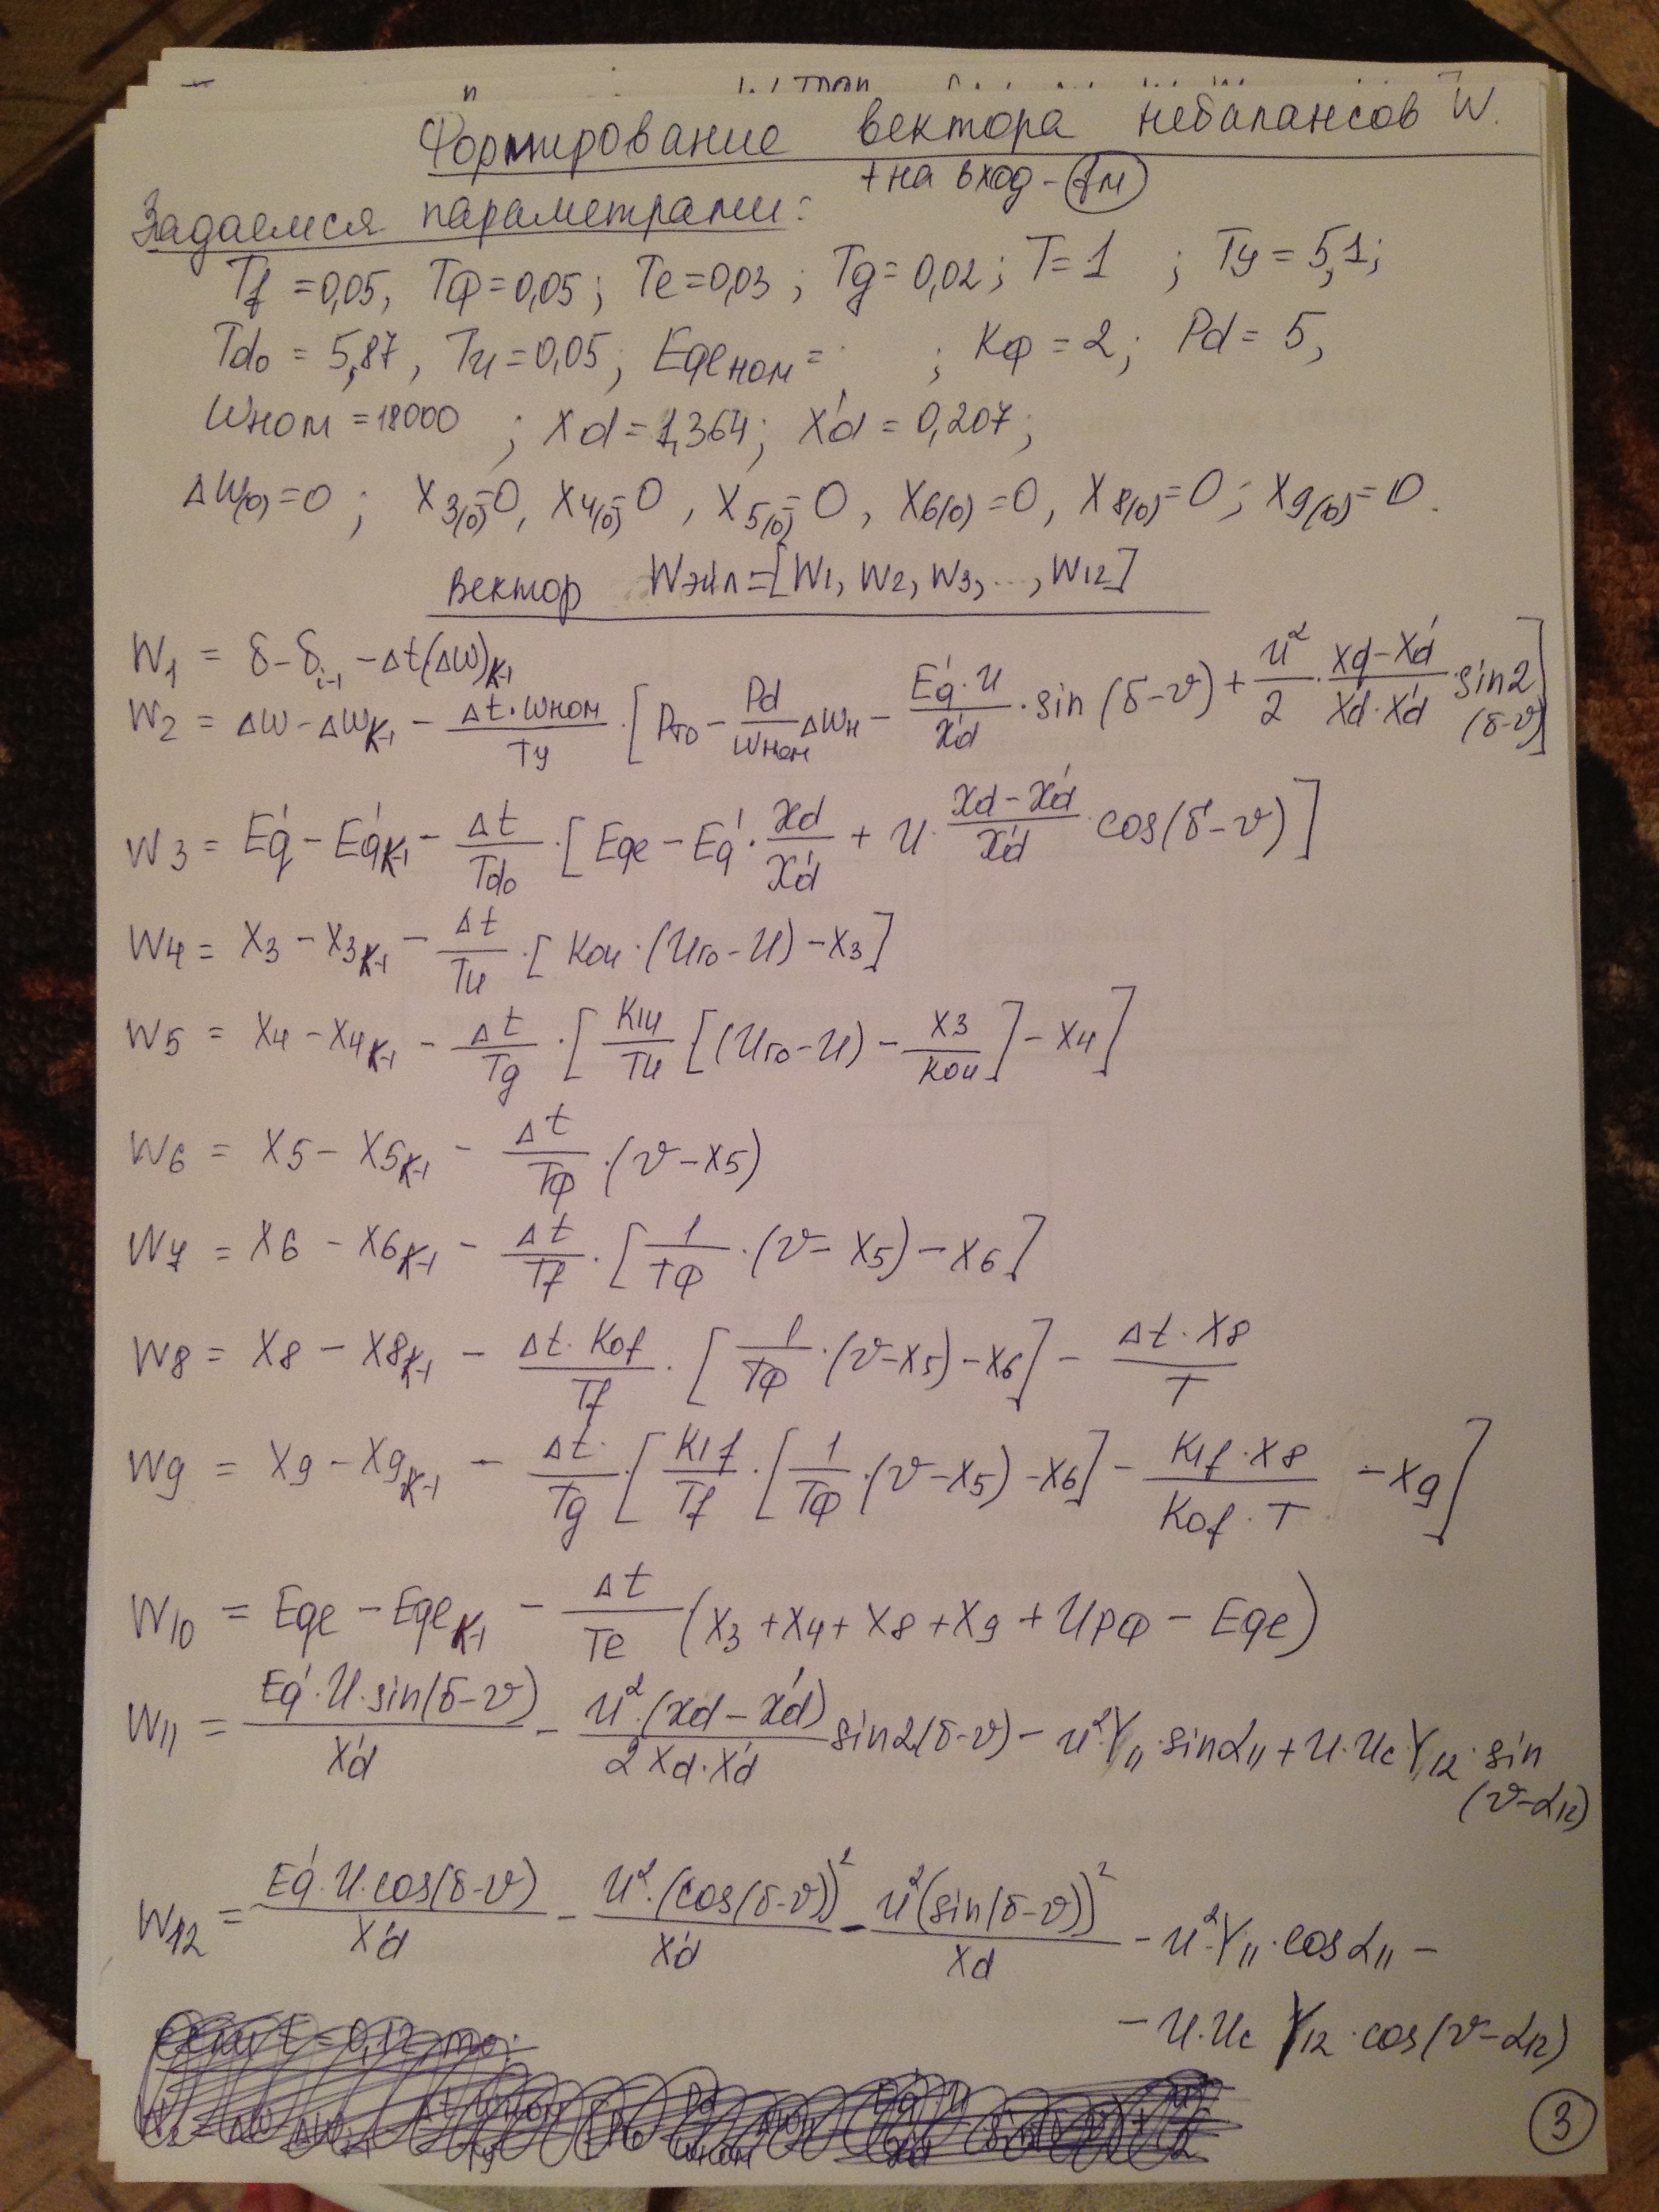 Формирование вектора небалансов W.
+на вход -
Задаемся параметрами:
Tf = 0,05, Tф = 0,05; Te = 0,03; Tg = 0,02; T = 1 ; Ty = 5,1;
Tdo = 5,87, Tu = 0,05; Eqe ном = ; Kф = 2; Pd = 5,
Wном = 18000 ; Xd = 1,364; X'd = 0,207;
ΔW(0) = 0 ; X3(0) = 0, X4(0) = 0, X5(0) = 0, X6(0) = 0, X8(0) = 0; X9(0) = 0.
Вектор Wэйл = [W1, W2, W3, ..., W12]
W1 = δ - δi-1 - Δt(ΔW)K-1
W2 = ΔW - ΔWK-1 - Δt·Wном/Ty · [Pго - Pd/Wном ΔWн - E'q·U/X'd · sin(δ-ϑ) + U²/2 · Xd-X'd/X'd·X'd · sin2(δ-ϑ)]
W3 = E'q - E'qK-1 - Δt/Tdo · [Eqe - E'q · Xd/X'd + U · Xd-X'd/X'd · cos(δ-ϑ)]
W4 = X3 - X3K-1 - Δt/Tu · [Kou·(Uго-U) - X3]
W5 = X4 - X4K-1 - Δt/Tg · [K1u/Tu [(Uго-U) - X3/Kou] - X4]
W6 = X5 - X5K-1 - Δt/Tф · (ϑ-X5)
W7 = X6 - X6K-1 - Δt/Tf · [1/Tф · (ϑ-X5) - X6]
W8 = X8 - X8K-1 - Δt·Kof/Tf · [1/Tф · (ϑ-X5) - X6] - Δt·X8/T
W9 = X9 - X9K-1 - Δt·/Tg · [K1f/Tf · [1/Tф · (ϑ-X5) - X6] - K1f·X8/Kof·T - X9]
W10 = Eqe - EqeK-1 - Δt/Te (X3 + X4 + X8 + X9 + Uрф - Eqe)
W11 = E'q·U·sin(δ-ϑ)/X'd - U²·(Xd-X'd)/2Xd·X'd sin2(δ-ϑ) - U²Y11·sinα11 + U·Uc Y12·sin(ϑ-α12)
W12 = E'q·U·cos(δ-ϑ)/X'd - U²·(cos(δ-ϑ))²/X'd - U²(sin(δ-ϑ))²/Xd - U²Y11·cosα11 -
- U·Uc Y12·cos(ϑ-α12)
3